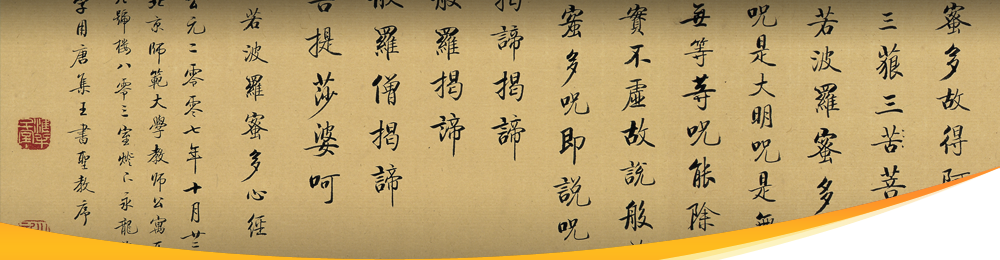 蜜多故得阿
三藐三菩
若波羅蜜多
呪是大明呪是無
等等呪能除
實不虛故說般
蜜多呪即說呪
揭諦揭諦
般羅揭諦
般羅僧揭諦
菩提莎婆呵
若波羅蜜多心經
公元二零零七年十月廿
北京師範大學教師公寓
號樓八零三室燈下永龍
字用唐集王書聖教序